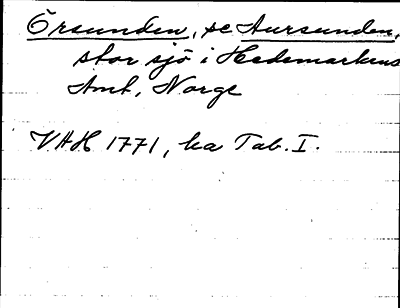 Örsunden, se Aursunden,
stor sjö i Hedemarkens
Amt, Norge
VAH 1771, ka Tab. I.